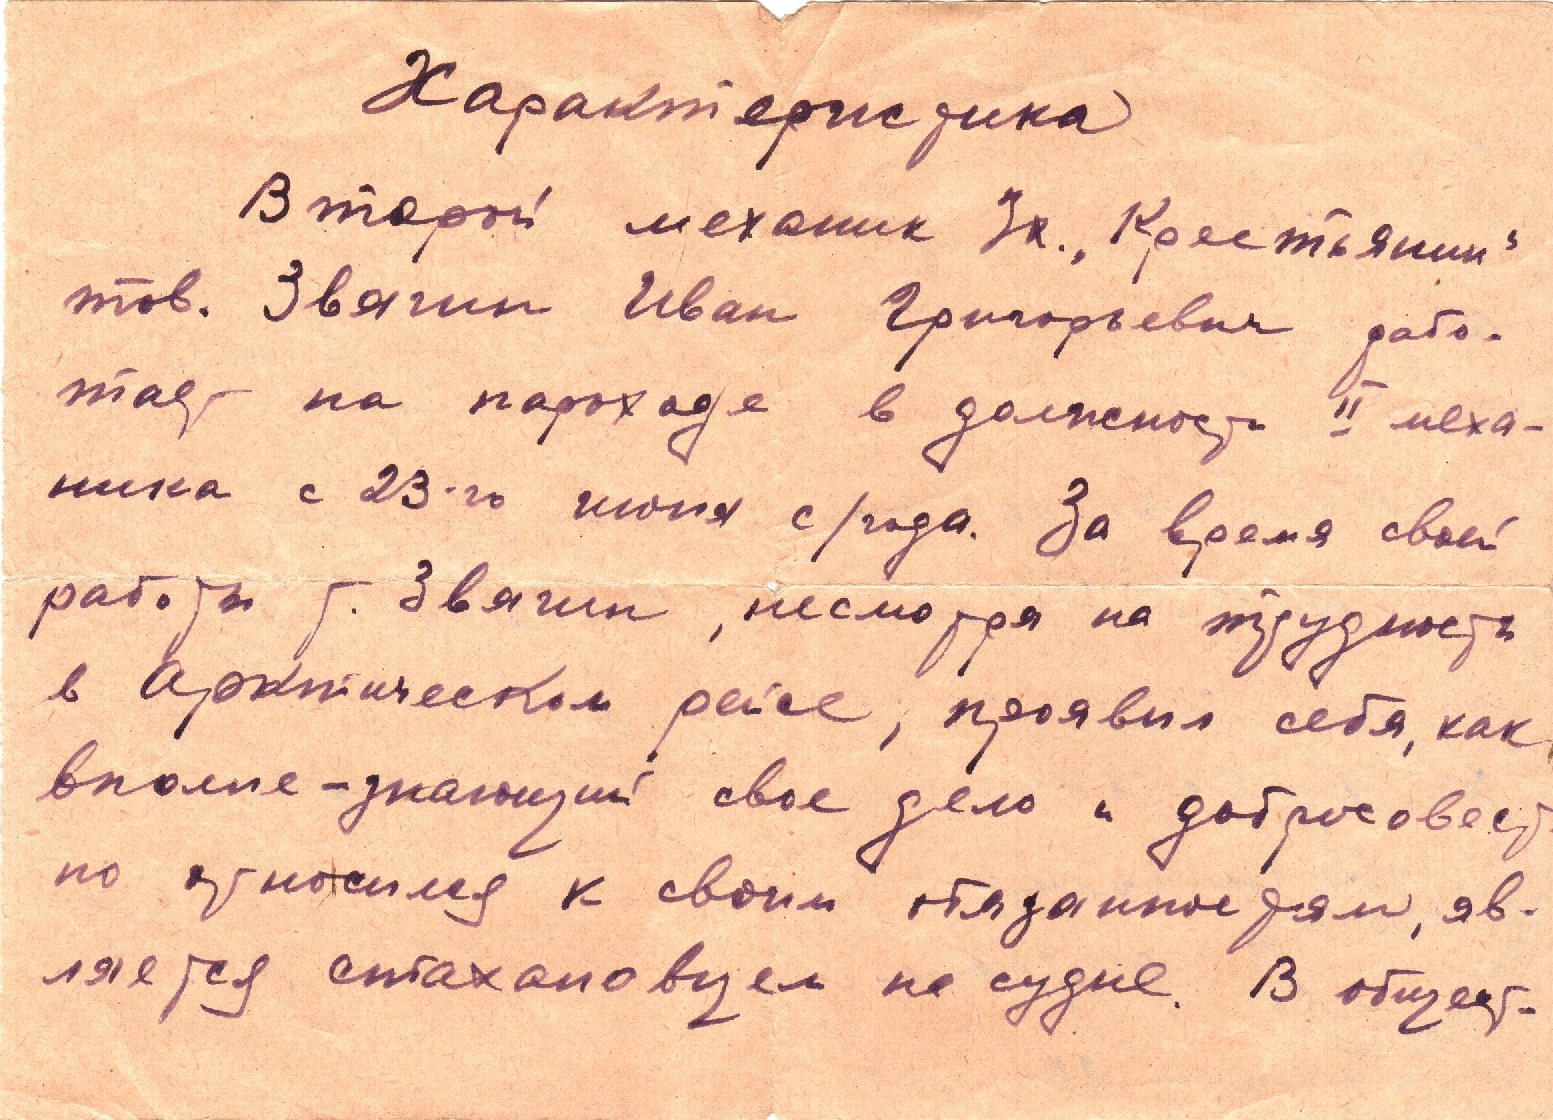 Характеристика
Второй механик Зх. „Крестьянин"
тов. Звягин Иван Григорьевич рабо-
тает на пароходе в должность II меха-
ника с 23-го июня с/года. За время своей
работы т. Звягин, несмотря на трудность
в Арктическом рейсе, проявил себя, как
вполне-знающий свое дело и добросовест
но относился к своим обязанностям, яв-
ляется стахановцем на судне. В общест-